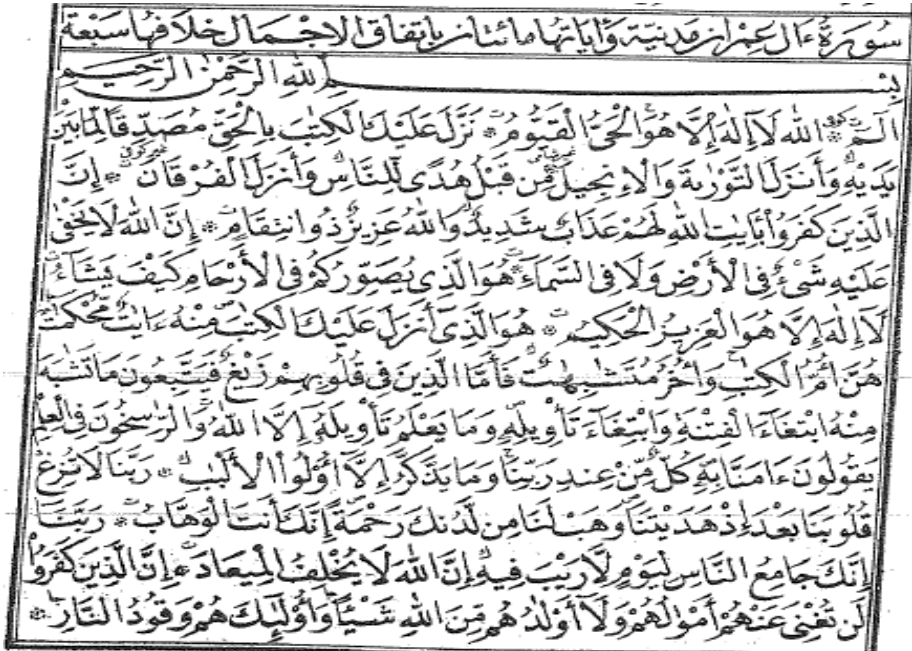 سُورَةُ ءَالِ عِمْرَانَ مَدَنِيَّة وَءَايَاتُهَا مِائَتَانِ بِاتِّفَاقِ الْإِجْمَالِ خِلَافُهَا سَبْعَة
بِسْمِ اللهِ الرَّحْمٰنِ الرَّحِيمِ
الٓمٓ * اللهُ لَآ إِلٰهَ إِلَّا هُوَ الْحَيُّ الْقَيُّومُ * نَزَّلَ عَلَيْكَ الْكِتٰبَ بِالْحَقِّ مُصَدِّقًا لِّمَا بَيْنَ
يَدَيْهِ وَأَنزَلَ التَّوْرٰىةَ وَالْإِنجِيلَ مِن قَبْلُ هُدًى لِّلنَّاسِ وَأَنزَلَ الْفُرْقَانَ * إِنَّ
الَّذِينَ كَفَرُواْ بِـَٔايٰتِ اللهِ لَهُمْ عَذَابٌ شَدِيدٌ وَاللهُ عَزِيزٌ ذُو انتِقَامٍ * إِنَّ اللهَ لَا يَخْفٰى
عَلَيْهِ شَيْءٌ فِي الْأَرْضِ وَلَا فِي السَّمَآءِ * هُوَ الَّذِي يُصَوِّرُكُمْ فِي الْأَرْحَامِ كَيْفَ يَشَآءُ
لَآ إِلٰهَ إِلَّا هُوَ الْعَزِيزُ الْحَكِيمُ * هُوَ الَّذِيٓ أَنزَلَ عَلَيْكَ الْكِتٰبَ مِنْهُ ءَايٰتٌ مُّحْكَمٰتٌ
هُنَّ أُمُّ الْكِتٰبِ وَأُخَرُ مُتَشٰبِهٰتٌ فَأَمَّا الَّذِينَ فِي قُلُوبِهِمْ زَيْغٌ فَيَتَّبِعُونَ مَا تَشٰبَهَ
مِنْهُ ابْتِغَآءَ الْفِتْنَةِ وَابْتِغَآءَ تَأْوِيلِهِ وَمَا يَعْلَمُ تَأْوِيلَهُ إِلَّا اللهُ وَالرّٰسِخُونَ فِي الْعِلْمِ
يَقُولُونَ ءَامَنَّا بِهِ كُلٌّ مِّنْ عِندِ رَبِّنَا وَمَا يَذَّكَّرُ إِلَّآ أُوْلُواْ الْأَلْبٰبِ * رَبَّنَا لَا تُزِغْ
قُلُوبَنَا بَعْدَ إِذْ هَدَيْتَنَا وَهَبْ لَنَا مِن لَّدُنكَ رَحْمَةً إِنَّكَ أَنتَ الْوَهَّابُ * رَبَّنَآ
إِنَّكَ جَامِعُ النَّاسِ لِيَوْمٍ لَّا رَيْبَ فِيهِ إِنَّ اللهَ لَا يُخْلِفُ الْمِيعَادَ * إِنَّ الَّذِينَ كَفَرُواْ
لَن تُغْنِيَ عَنْهُمْ أَمْوٰلُهُمْ وَلَآ أَوْلٰدُهُم مِّنَ اللهِ شَيْـًٔا وَأُوْلٰٓئِكَ هُمْ وَقُودُ النَّارِ *